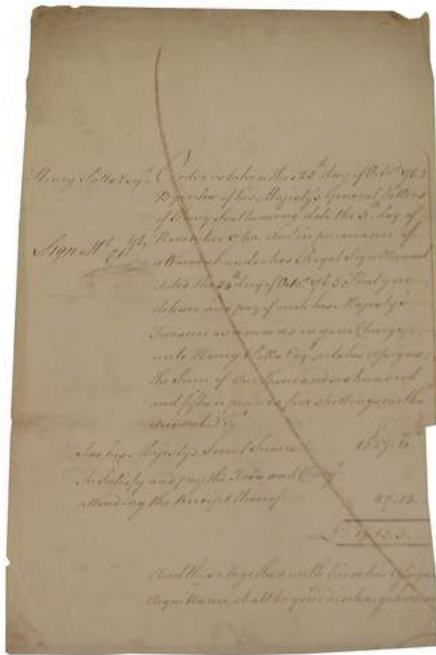 Henry Potts Esqr. Order is taken this 25th day of Octor. 1763
By virtue of his Majesty's General Letters
of Privy Seal bearing date the 5th day of
November 1760 And in pursuance of
a Warrant under his Royal Sign Manual
dated the 24th day of Octor. 1763 That you
deliver and pay of such his Majesty's
Treasure as remains in your Charge
unto Henry Potts Esqr. or to his Assigns
the Sum of One thousand six hundred
and fifteen pounds five shillings
Sign M
For his Majesty's Secret Service
To Satisfy and pay the Fees and Charges
attending the Receipt thereof 
And these together with his or his Assigns
Acquittance shall be your discharge herein